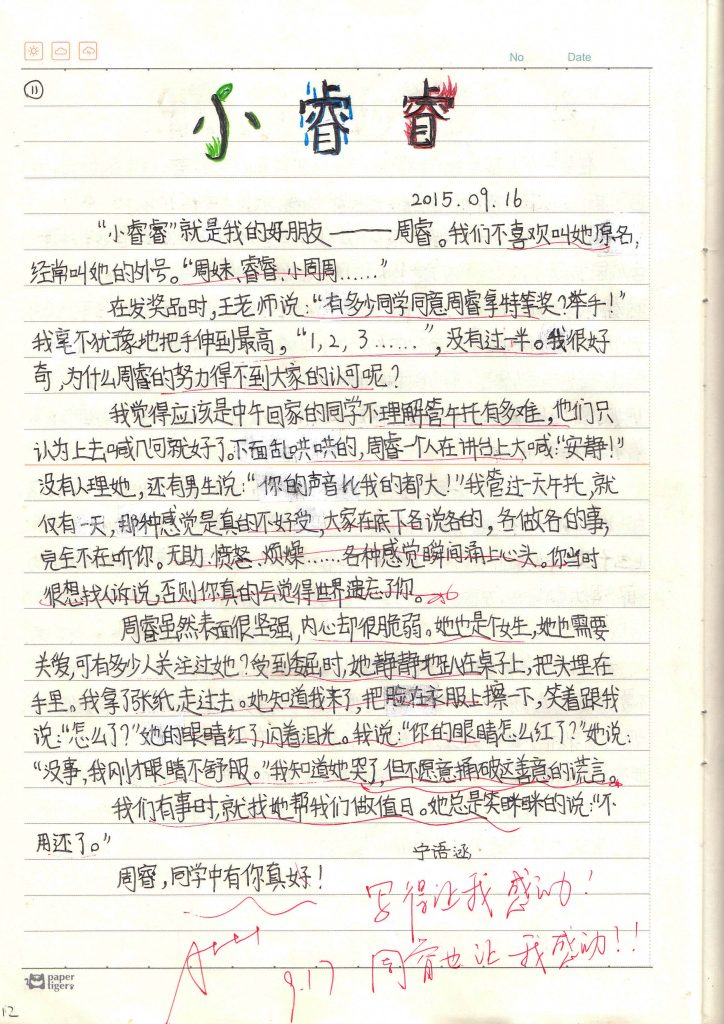 No Date
11
小睿睿
2015.09.16
“小睿睿”就是我的好朋友——周睿。我们不喜欢叫她原名，
经常叫她的外号。“周妹、睿睿、小周周……”
在发奖品时，王老师说：“有多少同学同意周睿拿特等奖？举手！”
我毫不犹豫地把手伸到最高，“1，2，3……”，没有过一半。我很好
奇，为什么周睿的努力得不到大家的认可呢？
我觉得应该是中午回家的同学不理解管午托有多难，他们只
认为上去喊几句就好了。下面乱哄哄的，周睿一个人在讲台上大喊：“安静！”
没有人理她，还有男生说：“你的声音比我的都大！”我管过一天午托，就
仅有一天，那种感觉是真的不好受，大家在底下各说各的，各做各的事，
完全不在听你。无助、愤怒、烦燥……各种感觉瞬间涌上心头。你当时
很想找人诉说，否则你真的会觉得世界遗忘了你。
周睿虽然表面很坚强，内心却很脆弱。她也是个女生，她也需要
关爱，可有多少人关注过她？受到委屈时，她静静地趴在桌子上，把头埋在
手里。我拿了张纸，走过去。她知道我来了，把脸在衣服上擦一下，笑着跟我
说：“怎么了？”她的眼睛红了，闪着泪光。我说：“你的眼睛怎么红了？”她说：
“没事，我刚才眼睛不舒服。”我知道她哭了，但不愿意捅破这善意的谎言。
我们有事时，就找她帮我们做值日。她总是笑眯眯的说：“不
用还了。”
宁语涵
周睿，同学中有你真好！
写得让我感动！
周睿也让我感动！！
9.17
paper
tigers
12